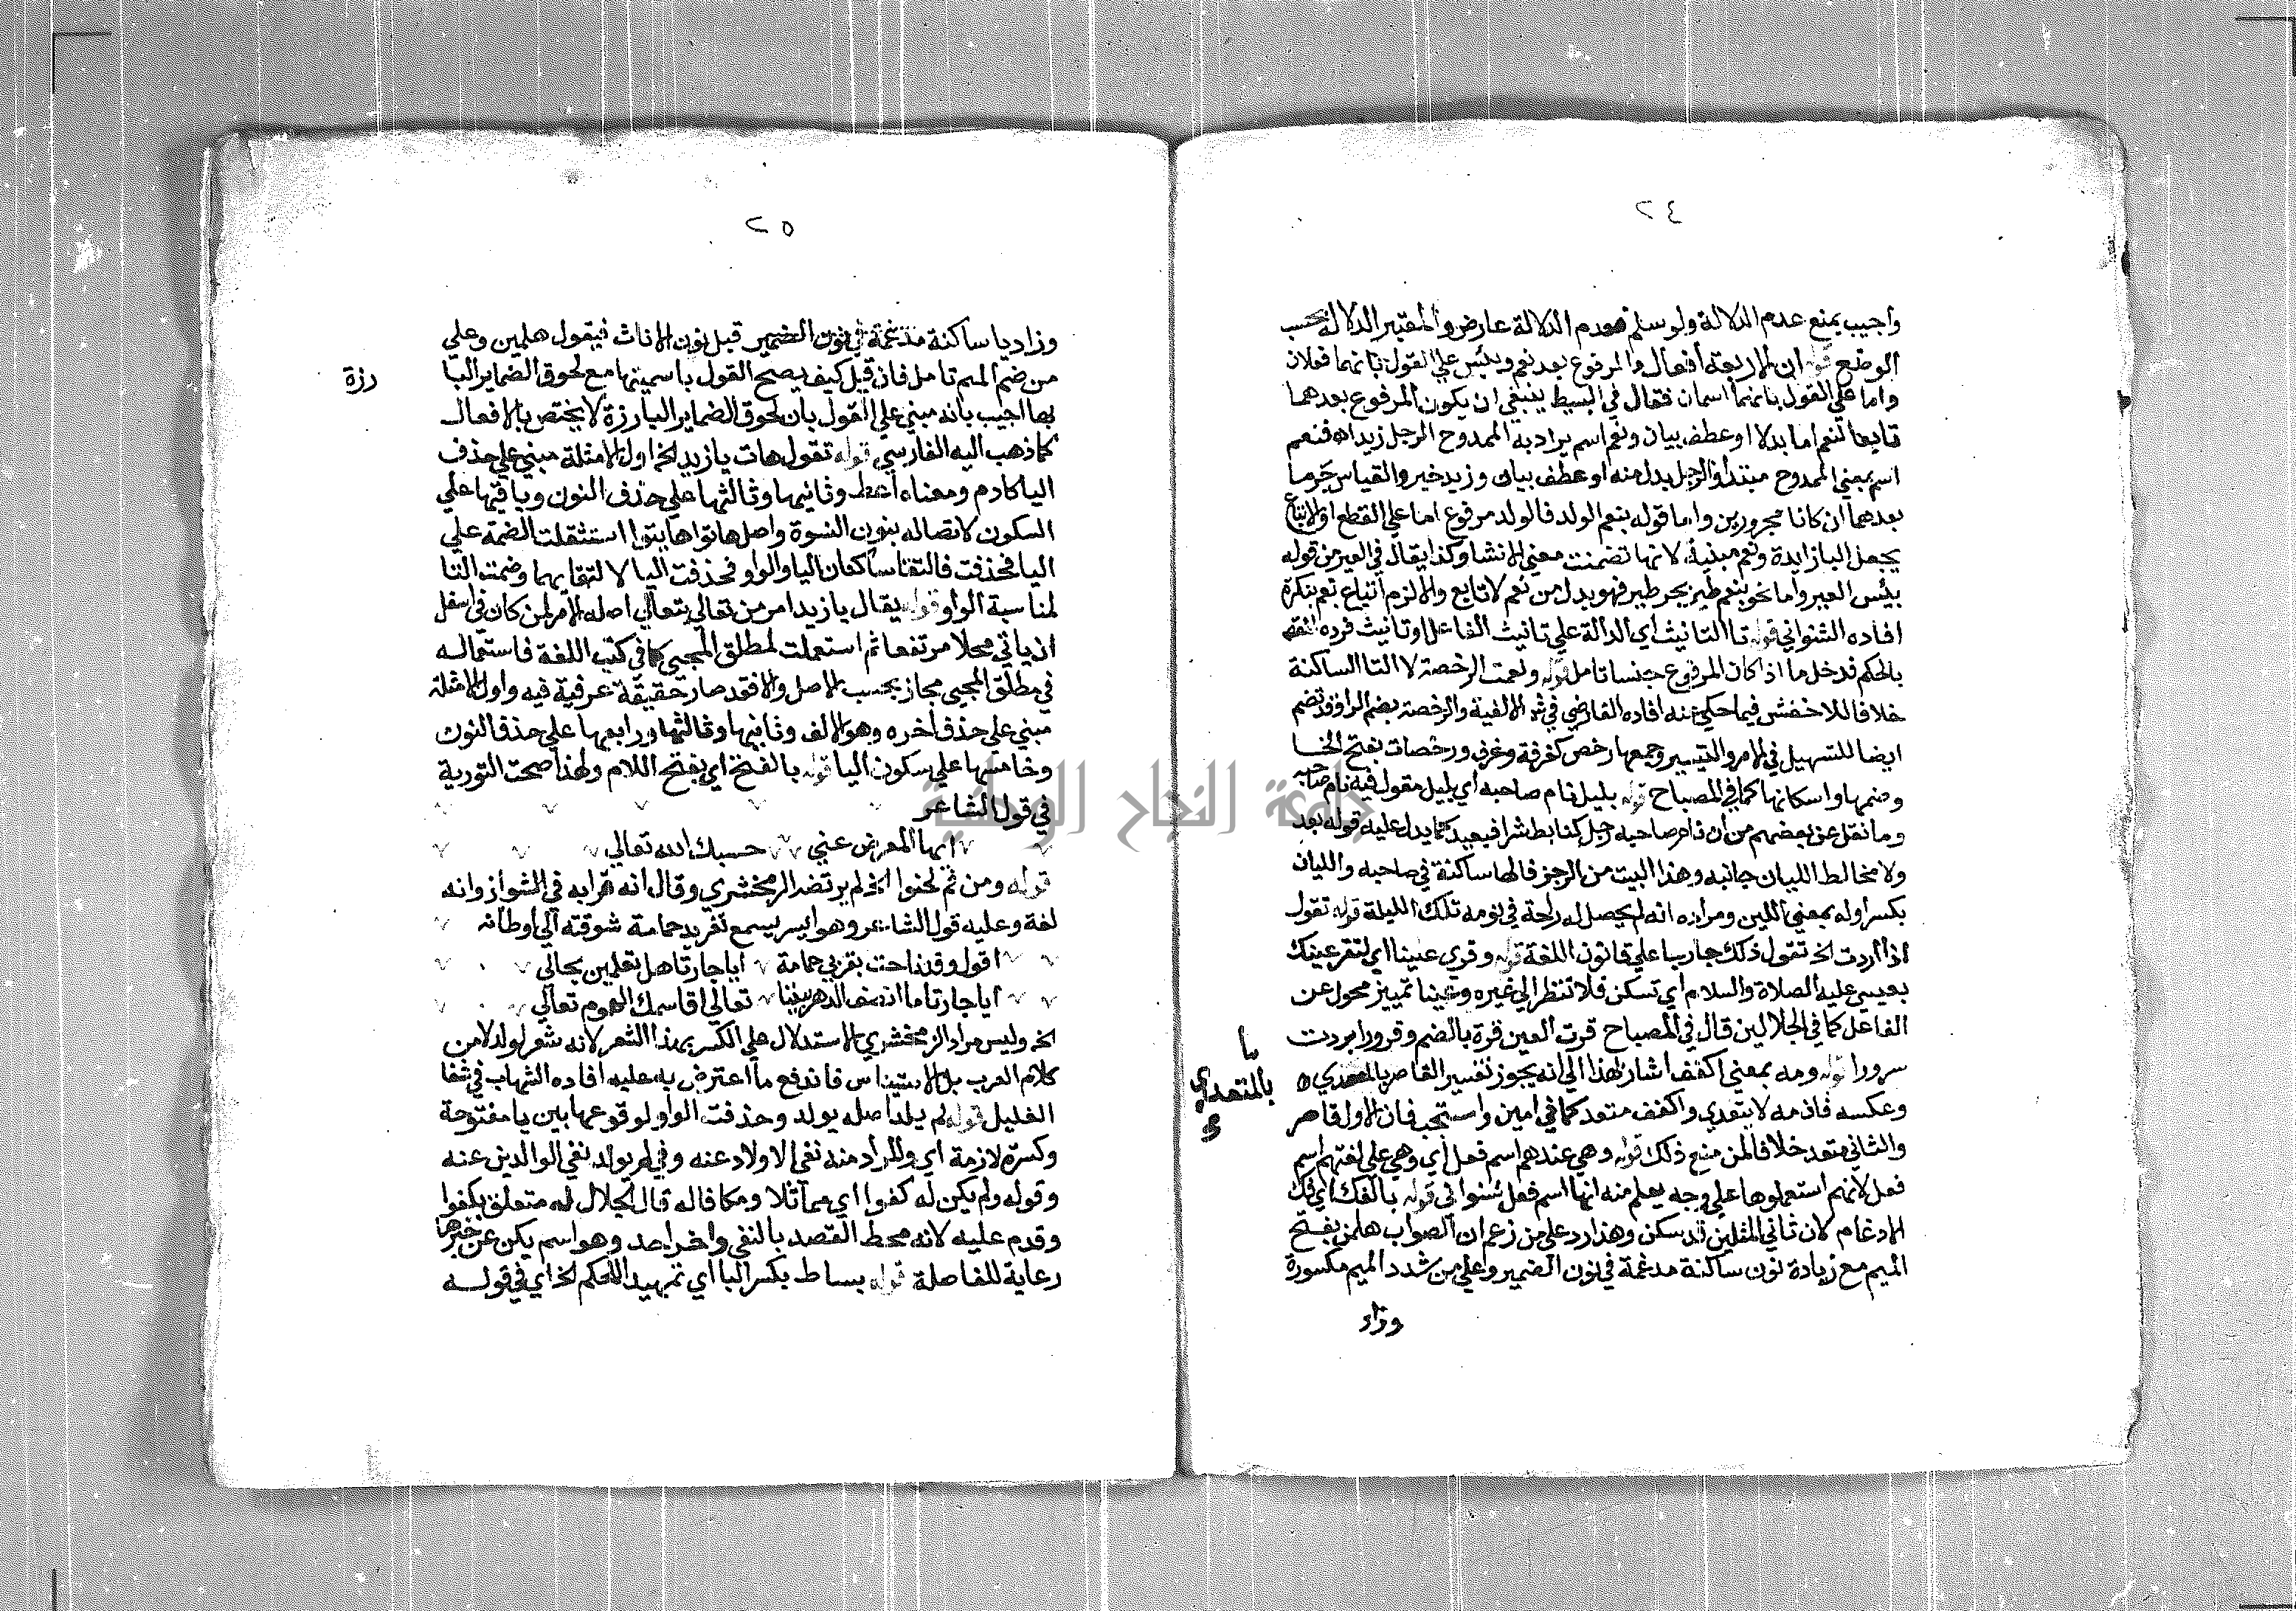 ٢٤
واجيب بمنع عدم الدلالة ولو سلم فعدم الدلالة عارض والمعتبر الدلالة بحسب
الوضع قوله ان الاربعة أفعال والمرفوع بعد نعم وبئس علي القول بانهما فعلان
واما علي القول بانهما اسمان فقال في البسيط ينبغي ان يكون المرفوع بعدهما
تابعا لنعم اما بدلا او عطف بيان ونعم اسم يراد به الممدوح الرجل زيد اه فنعم
اسم بمعني الممدوح مبتدأ والرجل بدل منه او عطف بيان وزيد خبر والقياس جر ما
بعدهما ان كانا مجرورين واما قوله بنعم الولد فالولد مرفوع اما علي القطع او الاتباع
بجعل البا زايدة ونعم مبنية لانها تضمنت معني الانشا وكذا يقال في العير من قوله
بيئس العير واما نحو بنعم طير بجر طير فهو بدل من نعم لا تابع والا لزم اتباع نعم بنكرة
افاده الشنواني قوله تا التانيث اي الدالة علي تانيث الفاعل او تانيث فرده
بالحكم فدخل ما اذا كان المرفوع جنسا تامل قوله ونعمت الرخصة لا التا الساكنة
خلافا للاخفش فيما حكي عنه افاده القارضي في شرح الالفية والرخصة بضم الرا وقد تضم
ايضا للتسهيل في الامر والتيسير وجمعها رخص كغرفة وغرف ورخصات بفتح الخا
وضمها واسكانها كما في المصباح قوله بليل نام صاحبه اي بليل مقول فيه نام صاحبه
وما نقل عن بعضهم من أن نام صاحبه رجل كتابط شرا فبعيد كما يدل عليه قوله بعد
ولا مخالط الليان جانبه وهذا البيت من الرجز فالها ساكنة في صاحبه والليان
بكسر اوله بمعني اللين ومراده انه لم يحصل له راحة في نومه تلك الليلة قوله تقول
اذا أردت الخ تقول ذلك جاريا علي قانون اللغة قوله وقري عينا اي لتقر عينك
بعيسي عليه الصلاة والسلام اي تسكن فلا تنظر الي غيره وعينا تمييز محول عن
الفاعل كما في الجلالين قال في المصباح قرت العين قرة بالضم وقرورا بردت
سرورا قوله ومه بمعني اكفف اشار بهذا الي انه يجوز تفسير القاصر
يا
بالمتعدي
وعكسه فان مه لا يتعدي واكفف متعد كما في امين واستجب فان الاول قاصر
والثاني متعد خلافا لمن منع ذلك قوله وهي عندهم اسم فعل اي وهي علي لغتهم اسم
فعل لانهم استعملوها علي وجه يعلم منه انها اسم فعل شنواني قوله بالفك اي فك
الادغام لان ثاني المثلين قد سكن وهذا رد علي من زعم ان الصواب هلمن بفتح
الميم مع زيادة نون ساكنة مدغمة في نون الضمير وعلي من شدد الميم مكسورة
وزاد
٢٥
وزاد يا ساكنة مدغمة في نون الضمير قبل نون الاناث فيقول هلمين وعلي
من ضم الميم تامل فان قيل كيف يصح القول باسميتها مع لحوق الضماير البا
رزة
بها اجيب بانه مبني علي القول بان لحوق الضماير البارزة لا يختص بالافعال
كما ذهب اليه الفارسي قوله تقول هات يا زيد الخ اول الامثلة مبني علي حذف
اليا كادم ومعناه أعط وثانيها وثالثها علي حذف النون وباقيها علي
السكون لاتصاله بنون النسوة واصل هاتوا هاتيوا استثقلت الضمة علي
اليا فحذفت فالتقا ساكنان اليا والواو فحذفت اليا لالتقايهما وضمت التا
لمناسبة الواو قوله يقال يا زيد امر من تعالي يتعالي اصله الامر لمن كان في اسفل
ان ياتي محلا مرتفعا ثم استعملت لمطلق المجي كما في كتب اللغة فاستعماله
في مطلق المجي مجاز بحسب الاصل والا فقد صار حقيقة عرفية فيه واول الامثلة
مبني علي حذف اخره وهو الالف وثانيها وثالثها ورابعها علي حذف النون
وخامسها علي سكون اليا قوله بالفتح اي بفتح اللام ولهذا صحت التورية
في قول الشاعر
ايها المعرض عني حسبك الله تعالي
قوله ومن ثم لحنوا الخ لم يرتضه الزمخشري وقال انه قرا به في الشواذ وانه
لغة وعليه قول الشاعر وهو ايسر يسمع تغريد حمامة شوقته الي أوطانه
اقول وقد ناحت بقربي حمامة ايا جارتا هل تعلمين بحالي
أيا جارتا ما انصف الدهر بيننا تعالي اقاسمك الهموم تعالي
الخ وليس مراد الزمخشري الاستدلال علي الكسر بهذا الشعر لانه شعر لولد لا من
كلام العرب بل الاستيناس فاندفع ما اعترض به عليه افاده الشهاب في شفا
الغليل قوله لم يلد اصله يولد وحذفت الواو لوقوعها بين يا مفتوحة
وكسرة لازمة اي والمراد منه نفي الاولاد عنه وفي لم يولد نفي الوالدين عنه
وقوله ولم يكن له كفوا اي مماثلا ومكافا له قال الجلال له متعلق بكفوا
وقدم عليه لانه محط القصد بالنفي واخر احد وهو اسم يكن عن خبرها
رعاية للفاصلة قوله بساط بكسر البا اي تمهيد للحكم الخ اي في قوله
جامعة النجاح الوطنية